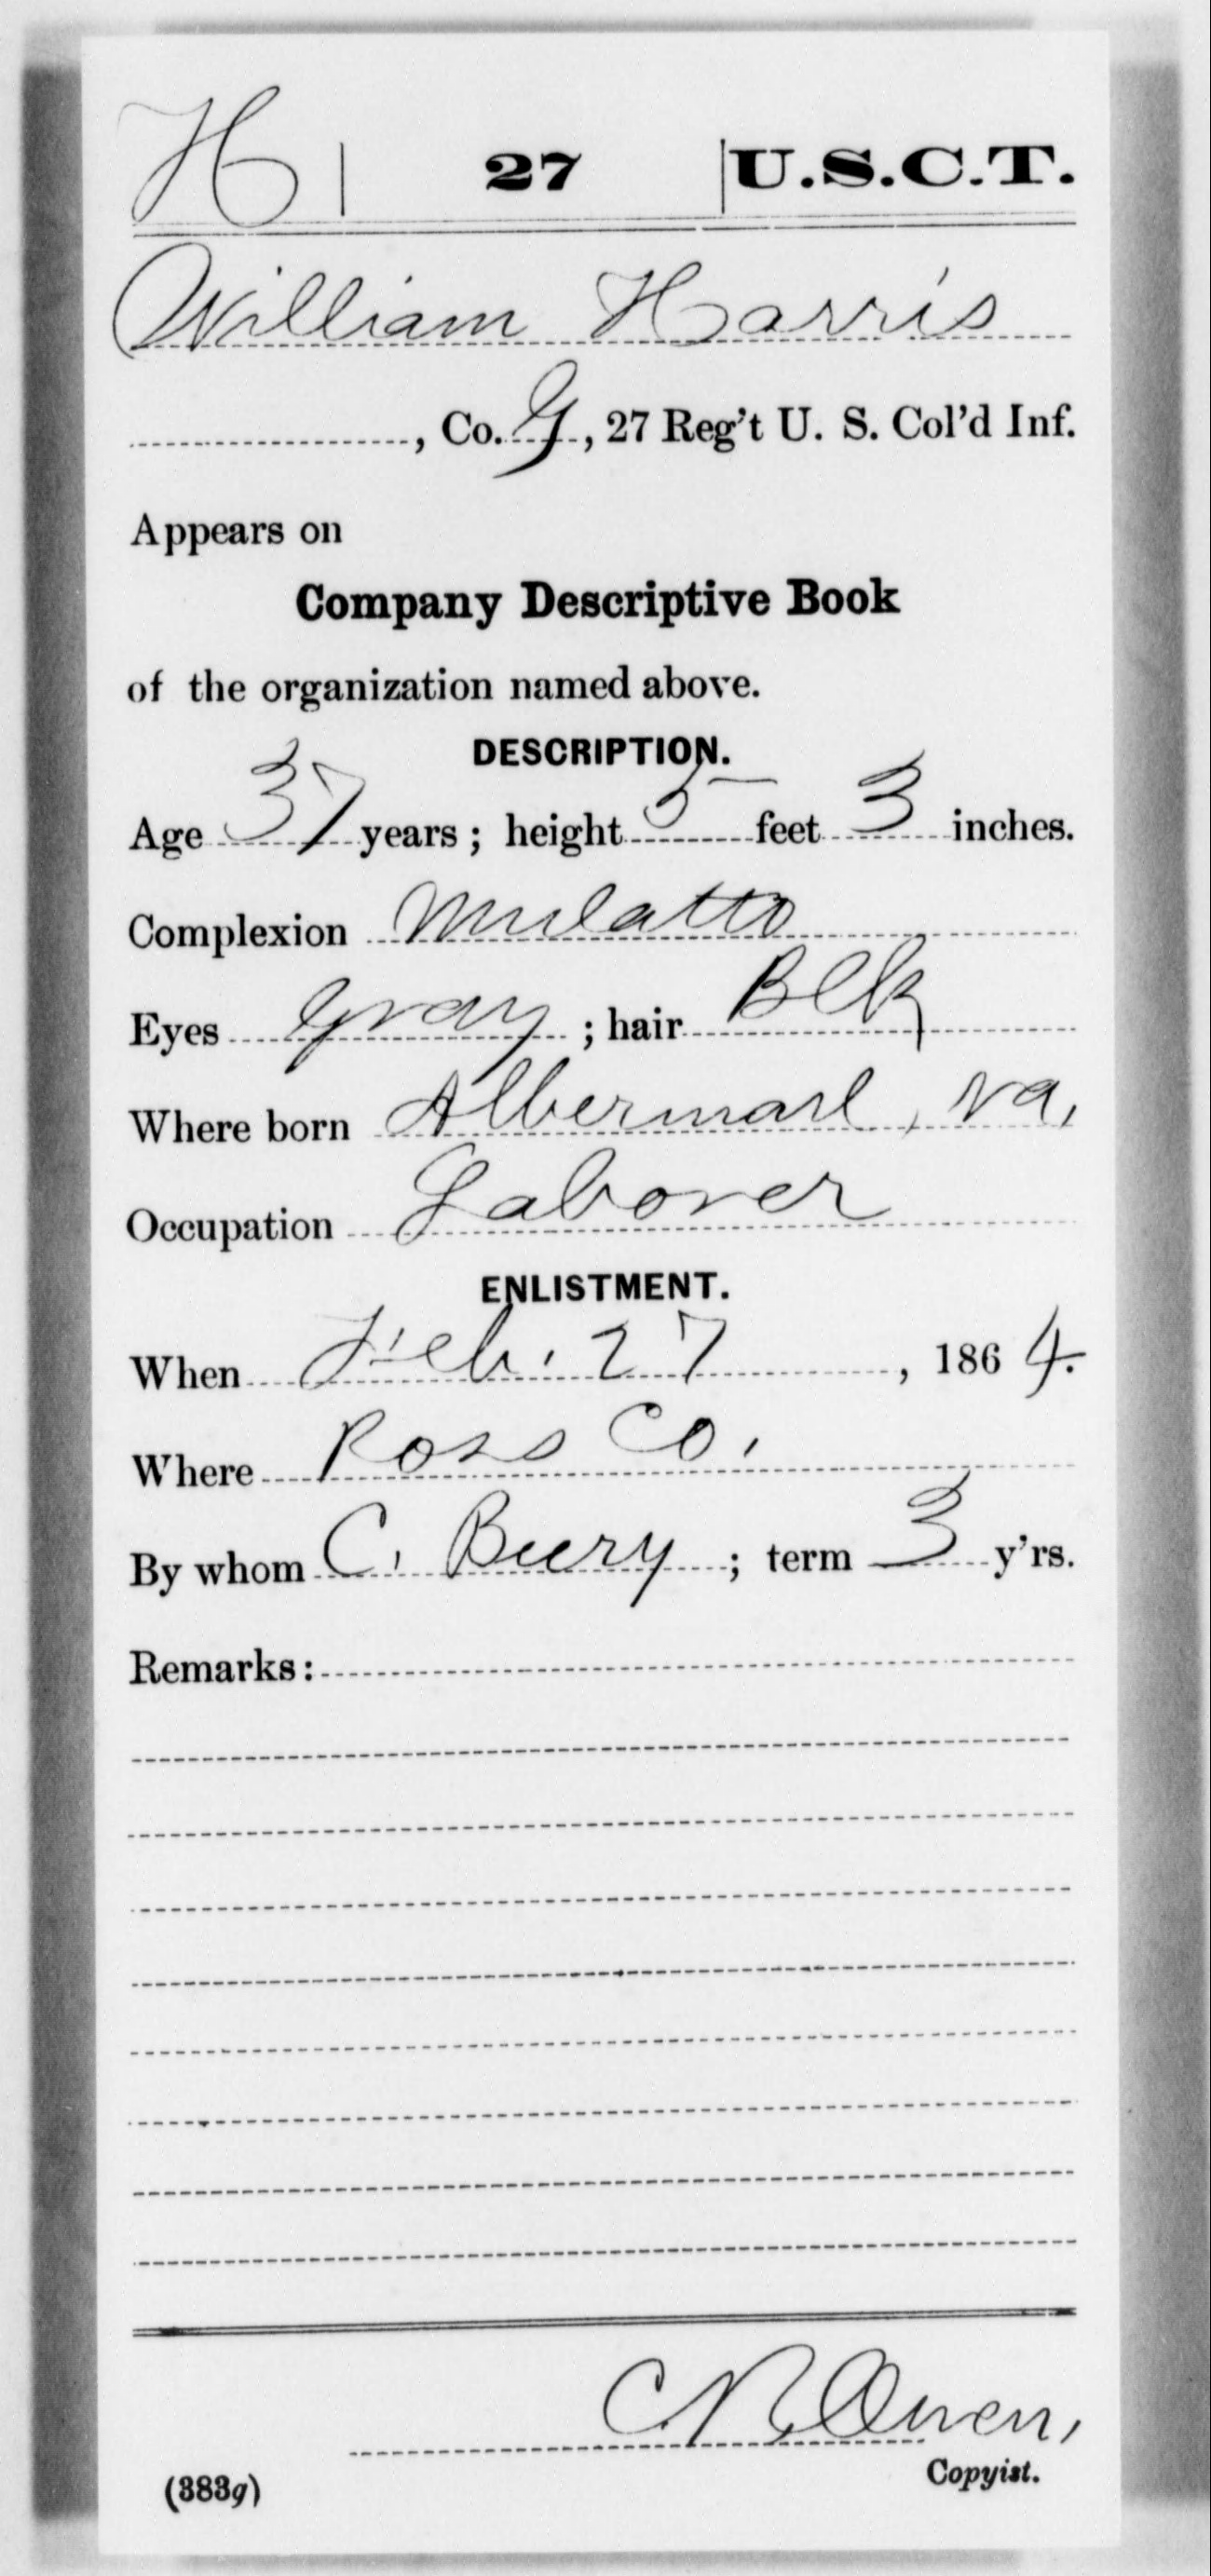 H | 27 | U.S.C.T.
William Harris
, Co. G, 27 Reg't U. S. Col'd Inf.
Appears on
Company Descriptive Book
of the organization named above.
DESCRIPTION.
Age 37 years; height 5 feet 3 inches.
Complexion Mulatto
Eyes Gray; hair Blk
Where born Albermarl, Va,
Occupation Laborer
ENLISTMENT.
When Feb. 27, 1864.
Where Ross Co.
By whom C. Buery; term 3 y'rs.
Remarks:
Owen,
Copyist.
(383g)